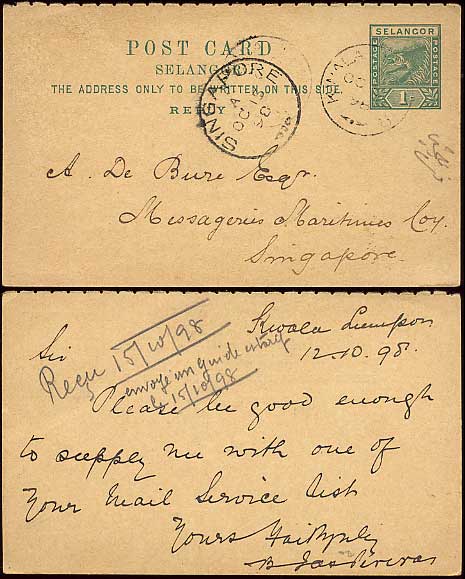 POST CARD
SELANGOR
THE ADDRESS ONLY TO BE WRITTEN ON THIS SIDE.
REPLY
SELANGOR
POSTAGE
POSTAGE
1c
SINGAPORE
A
OC 13
98
KWALA
OC
A. De Bure Esqr.
Messageries Maritimes Coy.
Singapore.
Kwala Lumpor
12.10.98.
Sir
Reçu 15/10/98
envoyé un guide et tarif
le 15/10/98
Please be good enough
to supply me with one of
Your Mail Service list
Yours Faithfully